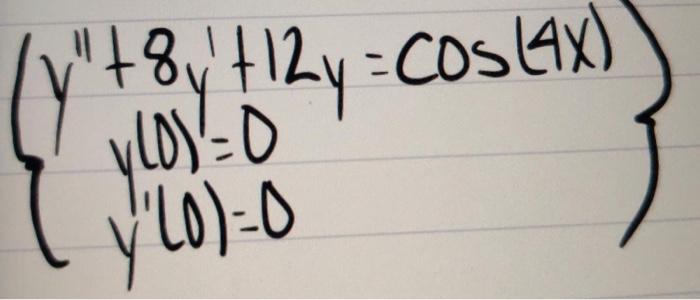 y''+8y'+12y=cos(4x)
y(0)=0
y'(0)=0